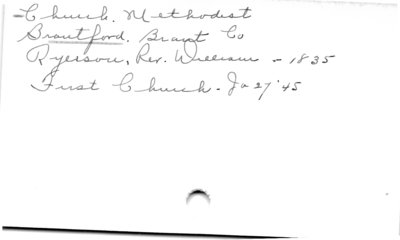 - Church, Methodist
Brantford. Brant Co
Ryerson, Rev. William - 1835
First Church - Ja 27 '45